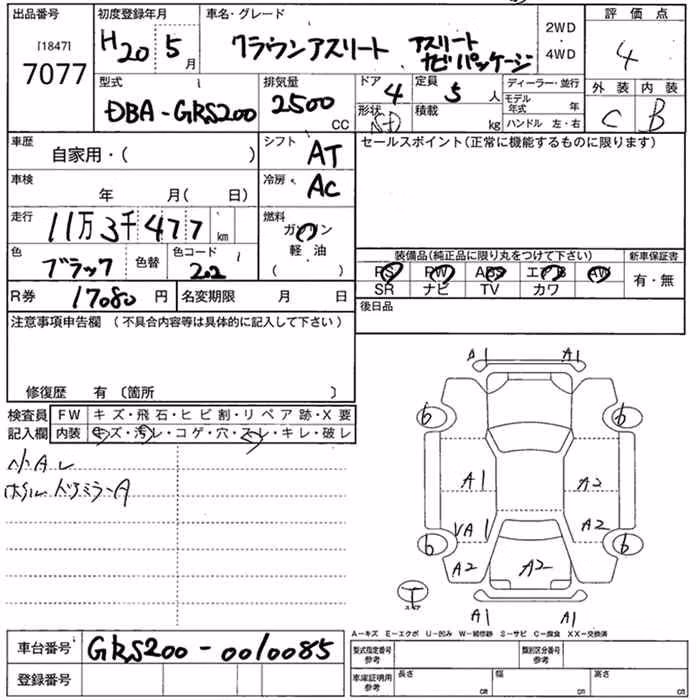 出品番号 初度登録年月 車名・グレード 2WD・4WD 評価点
[1847]
7077
H20 5月 クラウンアスリート アスリート ナビパッケージ 4
型式 排気量 ドア 4 定員 5人 ディーラー・並行 外装 内装
DBA-GRS200 2500 CC 形状 SD 積載 kg モデル年式 年 C B
ハンドル 左・右
車歴 シフト セールスポイント(正常に機能するものに限ります)
自家用・( ) AT
車検 冷房 AC
年 月( 日)
走行 燃料
11万3千477 km ガソリン
軽・油
( )
色 色替 色コード 装備品(純正品に限り丸をつけて下さい) 新車保証書
ブラック 202 PS PW ABS エアB AW 有・無
SR ナビ TV カワ
R券 17080円 名変期限 月 日 後日品
注意事項申告欄 (不具合内容等は具体的に記入して下さい)
修復歴 有 〔箇所 〕
検査員 FW キズ・飛石・ヒビ割・リペア跡・X要
記入欄 内装 キズ・汚レ・コゲ・穴・スレ・キレ・破レ
小Aレ
ドアミラーA
A1 A1
6 6
A1 A2
VA1 A2
6 6
A2 A2
T
A1 A1
A-キズ E-エクボ U-凹み W-補修跡 S-サビ C-腐食 XX-交換済
車台番号 GRS200-0010085
型式指定番号 参考 類別区分番号 参考
登録番号
車庫証明用 参考 長さ cm 幅 cm 高さ cm